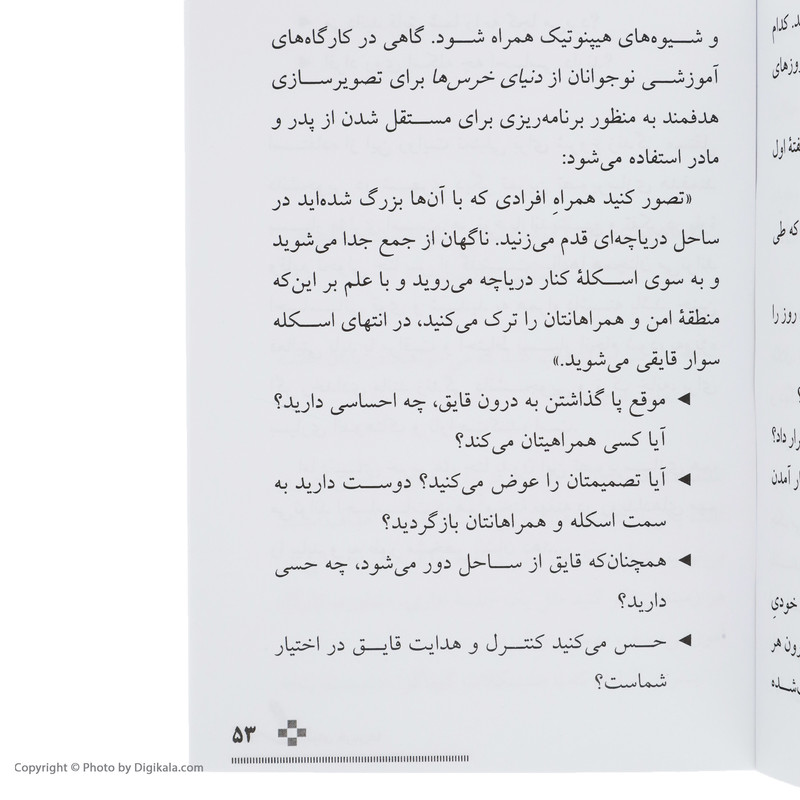 و شیوه‌های هیپنوتیک همراه شود. گاهی در کارگاه‌های
آموزشی نوجوانان از دنیای خرس‌ها برای تصویرسازی
هدفمند به منظور برنامه‌ریزی برای مستقل شدن از پدر و
مادر استفاده می‌شود:
«تصور کنید همراهِ افرادی که با آن‌ها بزرگ شده‌اید در
ساحل دریاچه‌ای قدم می‌زنید. ناگهان از جمع جدا می‌شوید
و به سوی اسکلهٔ کنار دریاچه می‌روید و با علم بر این‌که
منطقهٔ امن و همراهانتان را ترک می‌کنید، در انتهای اسکله
سوار قایقی می‌شوید.»
◄ موقع پا گذاشتن به درون قایق، چه احساسی دارید؟
آیا کسی همراهیتان می‌کند؟
◄ آیا تصمیمتان را عوض می‌کنید؟ دوست دارید به
سمت اسکله و همراهانتان بازگردید؟
◄ همچنان‌که قایق از ساحل دور می‌شود، چه حسی
دارید؟
◄ حس می‌کنید کنترل و هدایت قایق در اختیار
شماست؟
۵۳
کدام
روزهای
هفتهٔ اول
که طی
روز را
داد؟
آمدن
خودیِ
هر
Copyright © Photo by Digikala.com